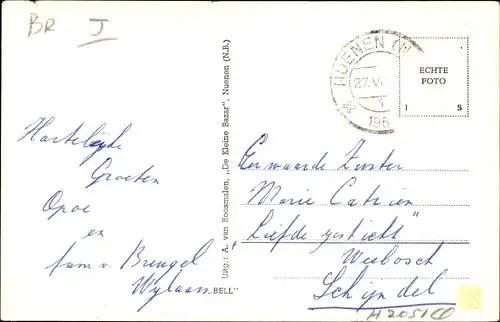 BR J
NUENEN (N
27.VI
1
196
ECHTE
FOTO
I S
Hartelijke
Groeten
Opoe
en
fam v. Brengel
Wylaars
Uitg.: A. van Roosmalen, „De Kleine Bazar", Nuenen (N.B.)
„BELL"
Eerwaarde Zuster
Marie Catrien
„Liefde gesticht"
Weebosch
Schijndel
H2051